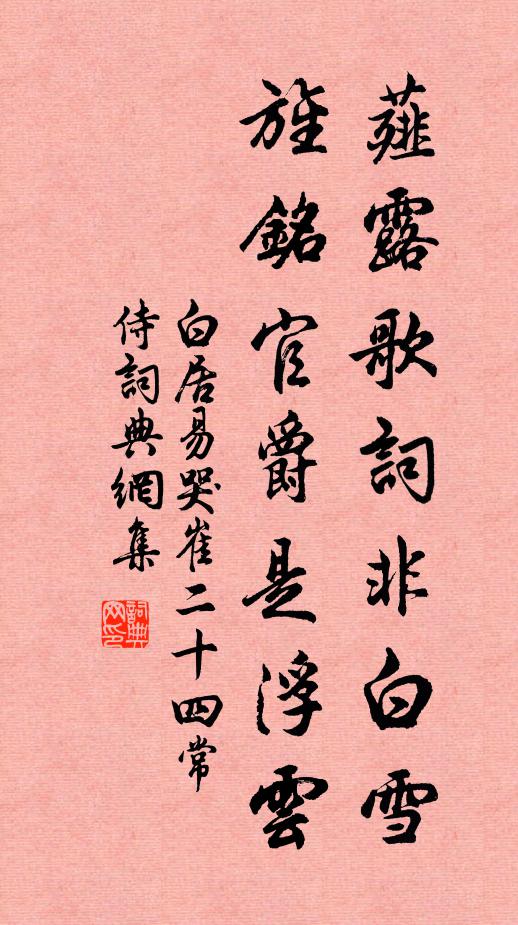 薤露歌詞非白雪
旌銘官爵是浮雲
白居易哭崔二十四常
侍詞典網集
詞典网印